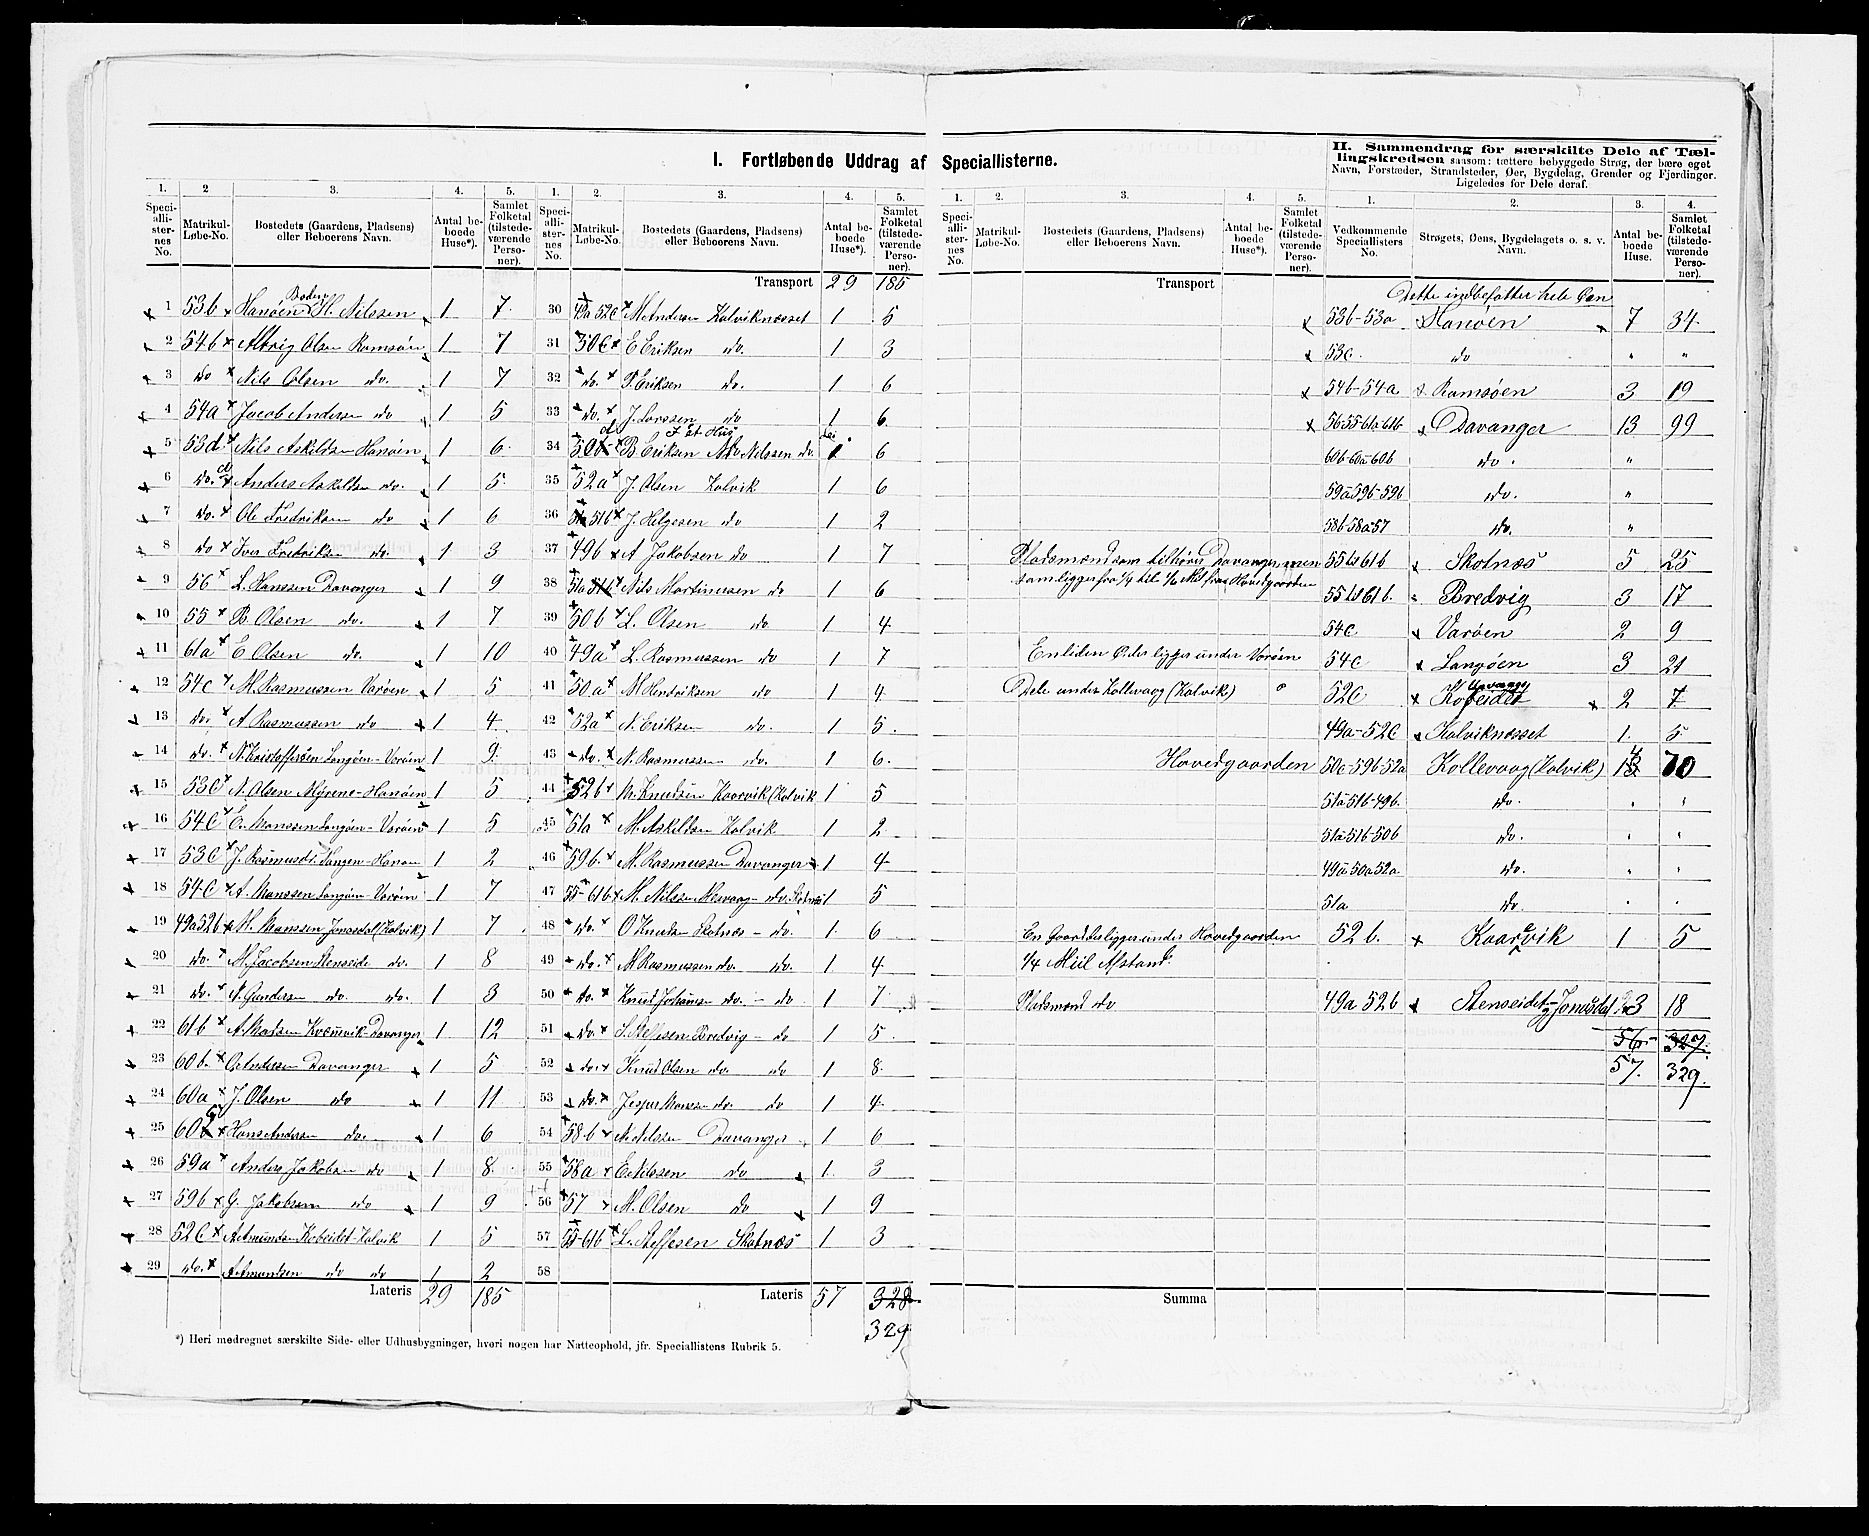 I. Fortløbende Uddrag af Speciallisterne.
II. Sammendrag for særskilte Dele af Tæl-
lingskredsen saasom: tættere bebyggede Strøg, der bære eget
Navn, Forstæder, Strandsteder, Øer, Bygdelag, Grender og Fjerdinger.
Ligeledes for Dele deraf.
1. 2 3. 4. 5. 1. 2. 3. 4. 5.
Speciallisternes No. Matrikul-Løbe-No. Bostedets (Gaardens, Pladsens) eller Beboerens Navn. Antal beboede Huse*). Samlet Folketal (tilstedeværende Personer).
Speciallisternes No. Matrikul-Løbe-No. Bostedets (Gaardens, Pladsens) eller Beboerens Navn. Antal beboede Huse*). Samlet Folketal (tilstedeværende Personer).
1 53b Hanøen Boden H. Nilssen 1 7
2 54b Olsen Ramsøen 1 7
3 do Nils Olsen do. 1 7
4 54a Jacob Andersen do 1 5
5 53d. Nils Askildsen Hanøen 1 6
6 do. Anders Askildsen do. 1 5
7 do. Ole Fredriksen do 1 6
8 do Iver Fredriksen do. 1 3
9 56 L. Hanssen Davanger 1 9
10 55 B. Olsen do. 1 7
11 61a E. Olsen do. 1 10
12 54c M. Rasmussen Varøen 1 5
13 do. A. Rasmussen do 1 4
14 do. N. Kristoffersen Langøen-Varøen 1 9
15 53c N. Olsen Myrene-Hanøen 1 5
16 54c E. Monssen Langøen-Varøen 1 5
17 53c J. Rasmusd. 1 2
18 54c A. Monssen Langøen-Varøen 1 7
19 49a52b M. Monssen Jonasdal (Kolvik) 1 7
20 do. M. Jacobsen Stenseide do. 1 8
21 do. A. Gundersen do. do. 1 3
22 61b A. Madsen Kvernvik-Davanger 1 12
23 60b. O. Andersen Davanger 1 5
24 60a J. Olsen do 1 11
25 60 Hans Andersen do. 1 6
26 59a Anders Jakobsen do 1 8
27 59b G. Jakobsen do 1 9
28 52c A. Amundsen Kobeidet-Kolvik 1 5
29 do. A. Amundsen do do 1 2
Lateris 29 185
Transport 29 185
30 49a 52c M. Andersen Kolviknæsset 1 5
31 50c E. Eriksen do. 1 3
32 do. P. Eriksen do. 1 6
33 do. J. Larssen do 1 6
I et Hus
34 50 B. Eriksen Nilssen do. 1 6
35 52a J. Olsen Kolvik 1 6
36 51b J. Helgesen do 1 2
37 49b A Jakobsen do 1 7
38 51a 51b Nils Martinussen do 1 6
39 50b L. Olsen do 1 4
40 49a L. Rasmussen do 1 7
41 50.a M Hendriksen do 1 4
42 52a N. Eriksen do. 1 5
43 do. N. Rasmussen do. 1 6
44 52b M. Knudsen Kaarvik (Kolvik 1 5
45 51a M. Askildsen Kolvik 1 2
46 59b. M. Rasmussen Davanger 1 4
47 55-61b M. Nilssen do. Skotnæs 1 5
48 do. O Knudsen Skotnæs - do. 1 6
49 do. M Rasmussen do. do. 1 4
50 do. Knud Johannesen do. - do 1 7
51 do. S. Steffesen Bredvig - do 1 5
52 do. Knud Olsen do do 1 8
53 do. Jesper Monssen do. do 1 4
54 58b N. Nilssen Davanger 1 6
55 58a E. Nilssen do 1 3
56 57 M. Olsen do 1 9
57 55-61b L. Steffesen Skotnæs 1 3
58
Lateris 57 328
329
1. 2. 3. 4. 5.
Speciallisternes No. Matrikul-Løbe-No. Bostedets (Gaardens, Pladsens) eller Beboerens Navn. Antal beboede Huse*). Samlet Folketal (tilstedeværende Personer).
Transport
Pladsmænd som tilhører Davangermænd
som ligger fra 1/4 til 1/2 Mil fra Hovedgaarden
En liden Ø der ligger under Varøen
Dele under Kollevaag (Kolvik)
Hovedgaarden
En Gaard der ligger under Hovedgaarden
1/4 Miil Afstand.
Pladsmænd do
Summa
1. 2. 3. 4.
Vedkommende Speciallisters No. Strøgets, Øens, Bygdelagets o. s. v. Navn. Antal beboede Huse. Samlet Folketal (tilstedeværende Personer).
Dette indbefatter hele Øen
53b-53a Hanøen 7 34
53c. do " "
54b-54a Ramsøen 3 19
56 55-61a-61b Davanger 13 99
60b-60a-60b do. "
59a-59b-59b do. "
58b-58a-57 do. "
55 61b Skotnæs 5 25
55 61b. Bredvig 3 17
54c. Varøen 2 9
54c Langøen 3 21
52c Kobeidet 2 7
49a-52c Kolviknæsset 1. 5
50c-59b-52a Kollevaag (Kolvik) 13 70
51a-51b-49b. do. " "
51a-51b-50b do. " "
49a-50a-52a. do. " "
51a do. " "
52b. Kaarvik 1 5
49a 52b Stenseidet-Jonasdal 3 18
56 327.
57. 329.
*) Heri medregnet særskilte Side- eller Udhusbygninger, hvori nogen har Natteophold, jfr. Speciallistens Rubrik 5.